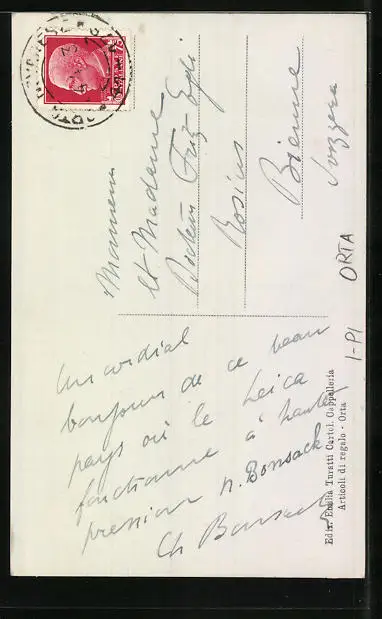 Monsieur
et Madame
Docteur Fritz Egli
Rosius
Bienne
Svizzera
Un cordial
bonjour de ce beau
pays où le Leica
fonctionne à haute
pression N. Bonsack
Ch Bonsack
Ediz. Emilia Turatti Cartol. Cappelleria
Articoli di regalo - Orta
ORTA
1-PI